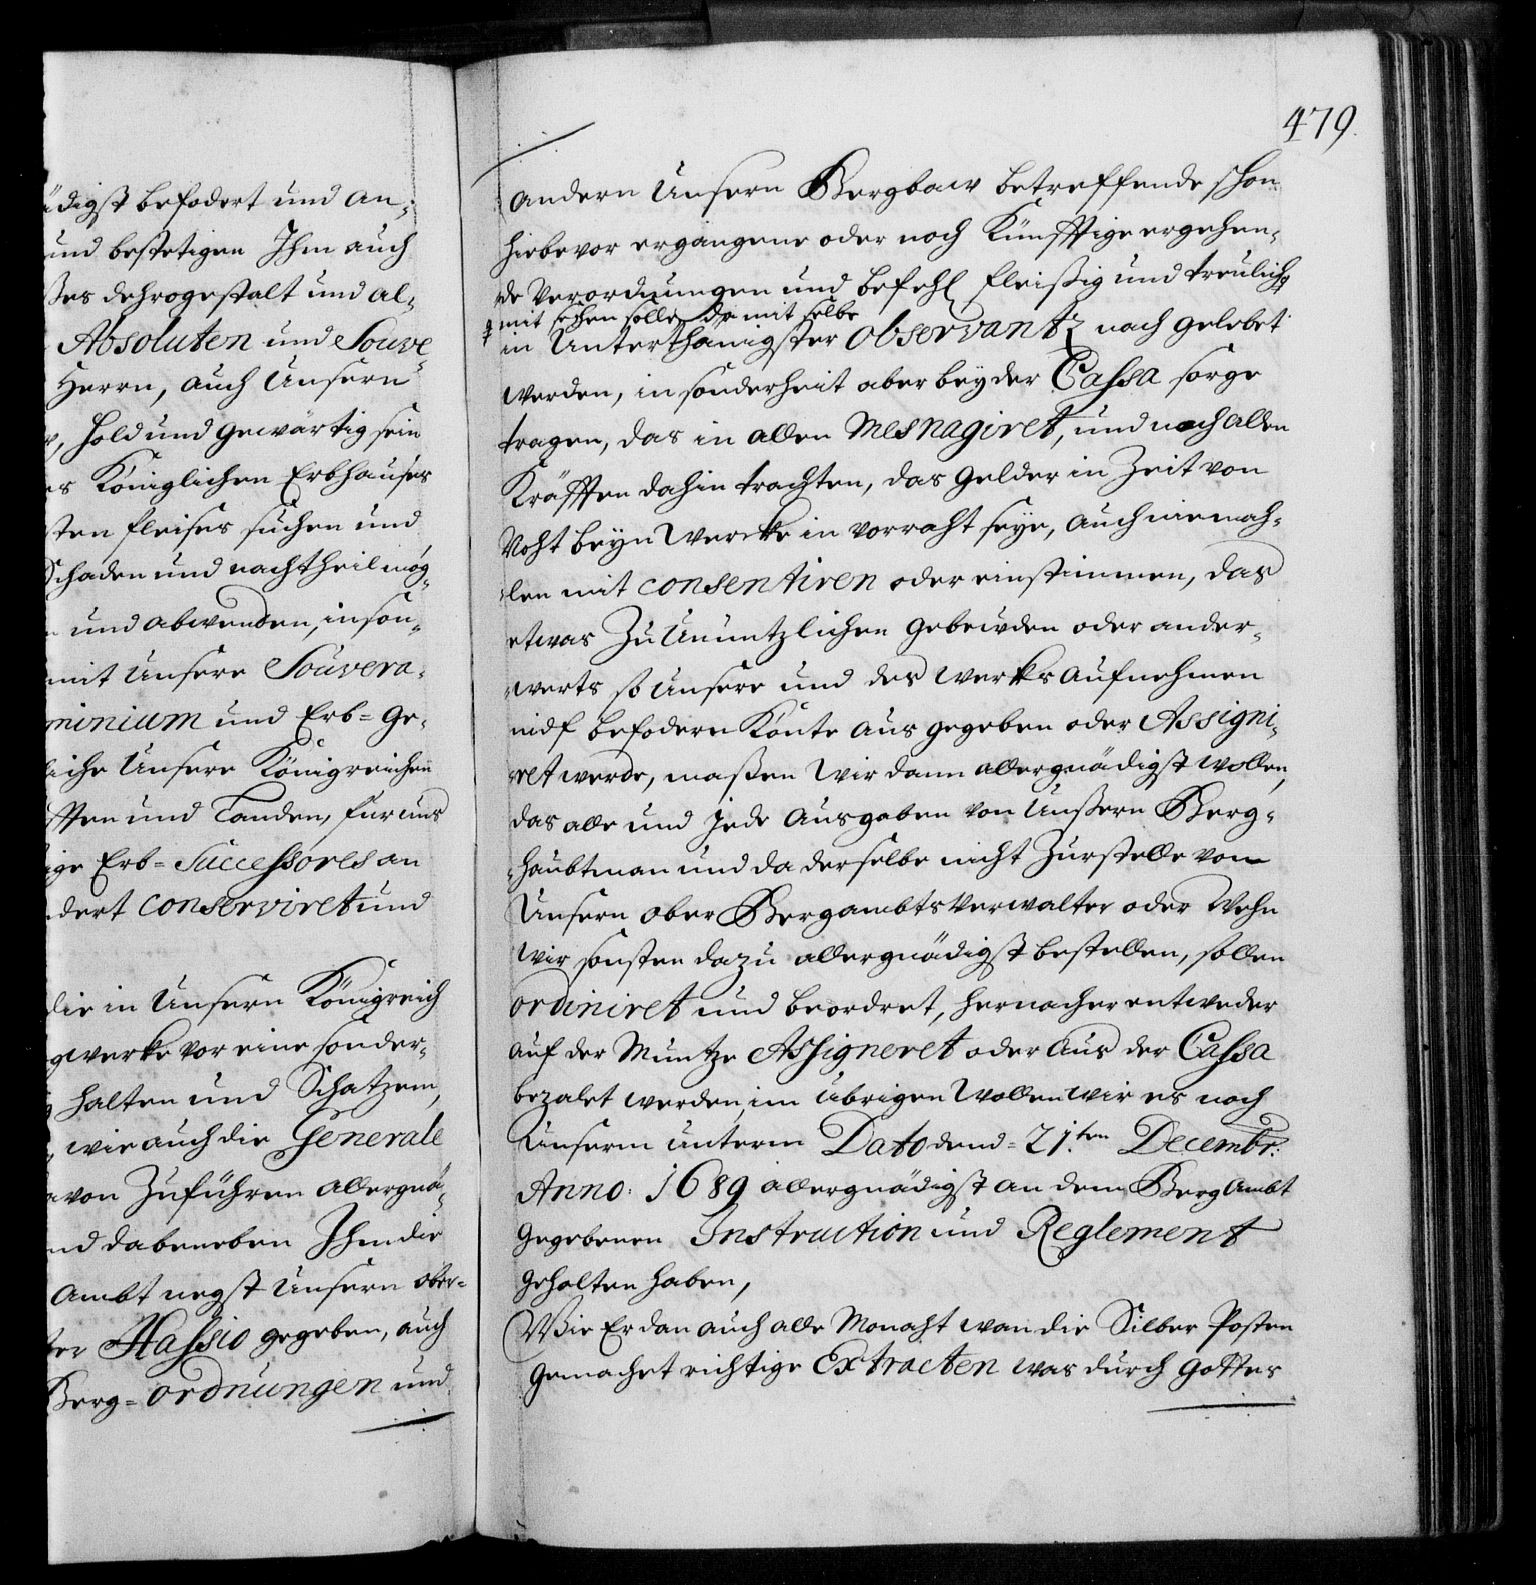 ädigst befodert und an-
und bestetigen Ihm auch
ses dehrogestalt und al-
Absoluten und Souve
Herrn, auch Unsern
hold und gewärtig sein
es Königlichen Erbhauses
sten fleises suchen und
Schaden und nachtheil mög-
und abwenden, inson-
mit Unsere Souvera-
minium und Erb-Ge-
liche Unsere Königreichen
fften und Landen, für uns
ige Erb-Successores an
dert conserviret und
die in Unsern Königreich
gwerke vor eine sonder-
halten und Schatzen,
wie auch die Generale
von Zuführen allergnä-
nd dabeneben Ihm die
Ambt negst Unsern ober-
ter Hassio gegeben, auch
Berg-ordnungen und
479.
andern Unsern Bergbaw betreffende schon
hiebevor ergangene oder noch Künfftige ergehen-
de Verordnungen und befehl fleißig und treulich
mit sehen solle damit selbe
in Unterthänigster Observantz nach gelebet
werden, in sonderheit aber bey der Cassa sorge
tragen, das in allen Mesnagiret, und nach allen
Kräfften dahin trachten, das gelder in Zeit von
Noht beyn Wercke in vorraht seye, auch niemah-
len mit consentiren oder einstimmen, das
etwas Zu Unnützlichen gebeüden oder ander-
werts so Unsere und des Werks aufnehmen
nicht befodern Könte aus gegeben oder Assigni-
ret werde, maßen Wir dann allergnädigst wollen,
das alle und jede Ausgaben von Unßern Berg-
haubtman und da derselbe nicht Zurstelle von
Unsern ober Bergambts Verwalter oder Wehn
wir sonsten dazu allergnädigst bestellen, sollen
ordiniret und beordret, hernacher entweder
auf der Müntze Assigneret oder aus der Cassa
bezalet werden, im übrigen wollen wir es nach
Unserm unterm Dato dend-21.ten Decembr:
Anno: 1689 allergnädigst an dem Berg Ambt
gegebenen Instruction und Reglement
gehalten haben,
Wie Er dan auch alle Monaht wan die Silber Posten
gemachet richtige Extracten was durch Gottes